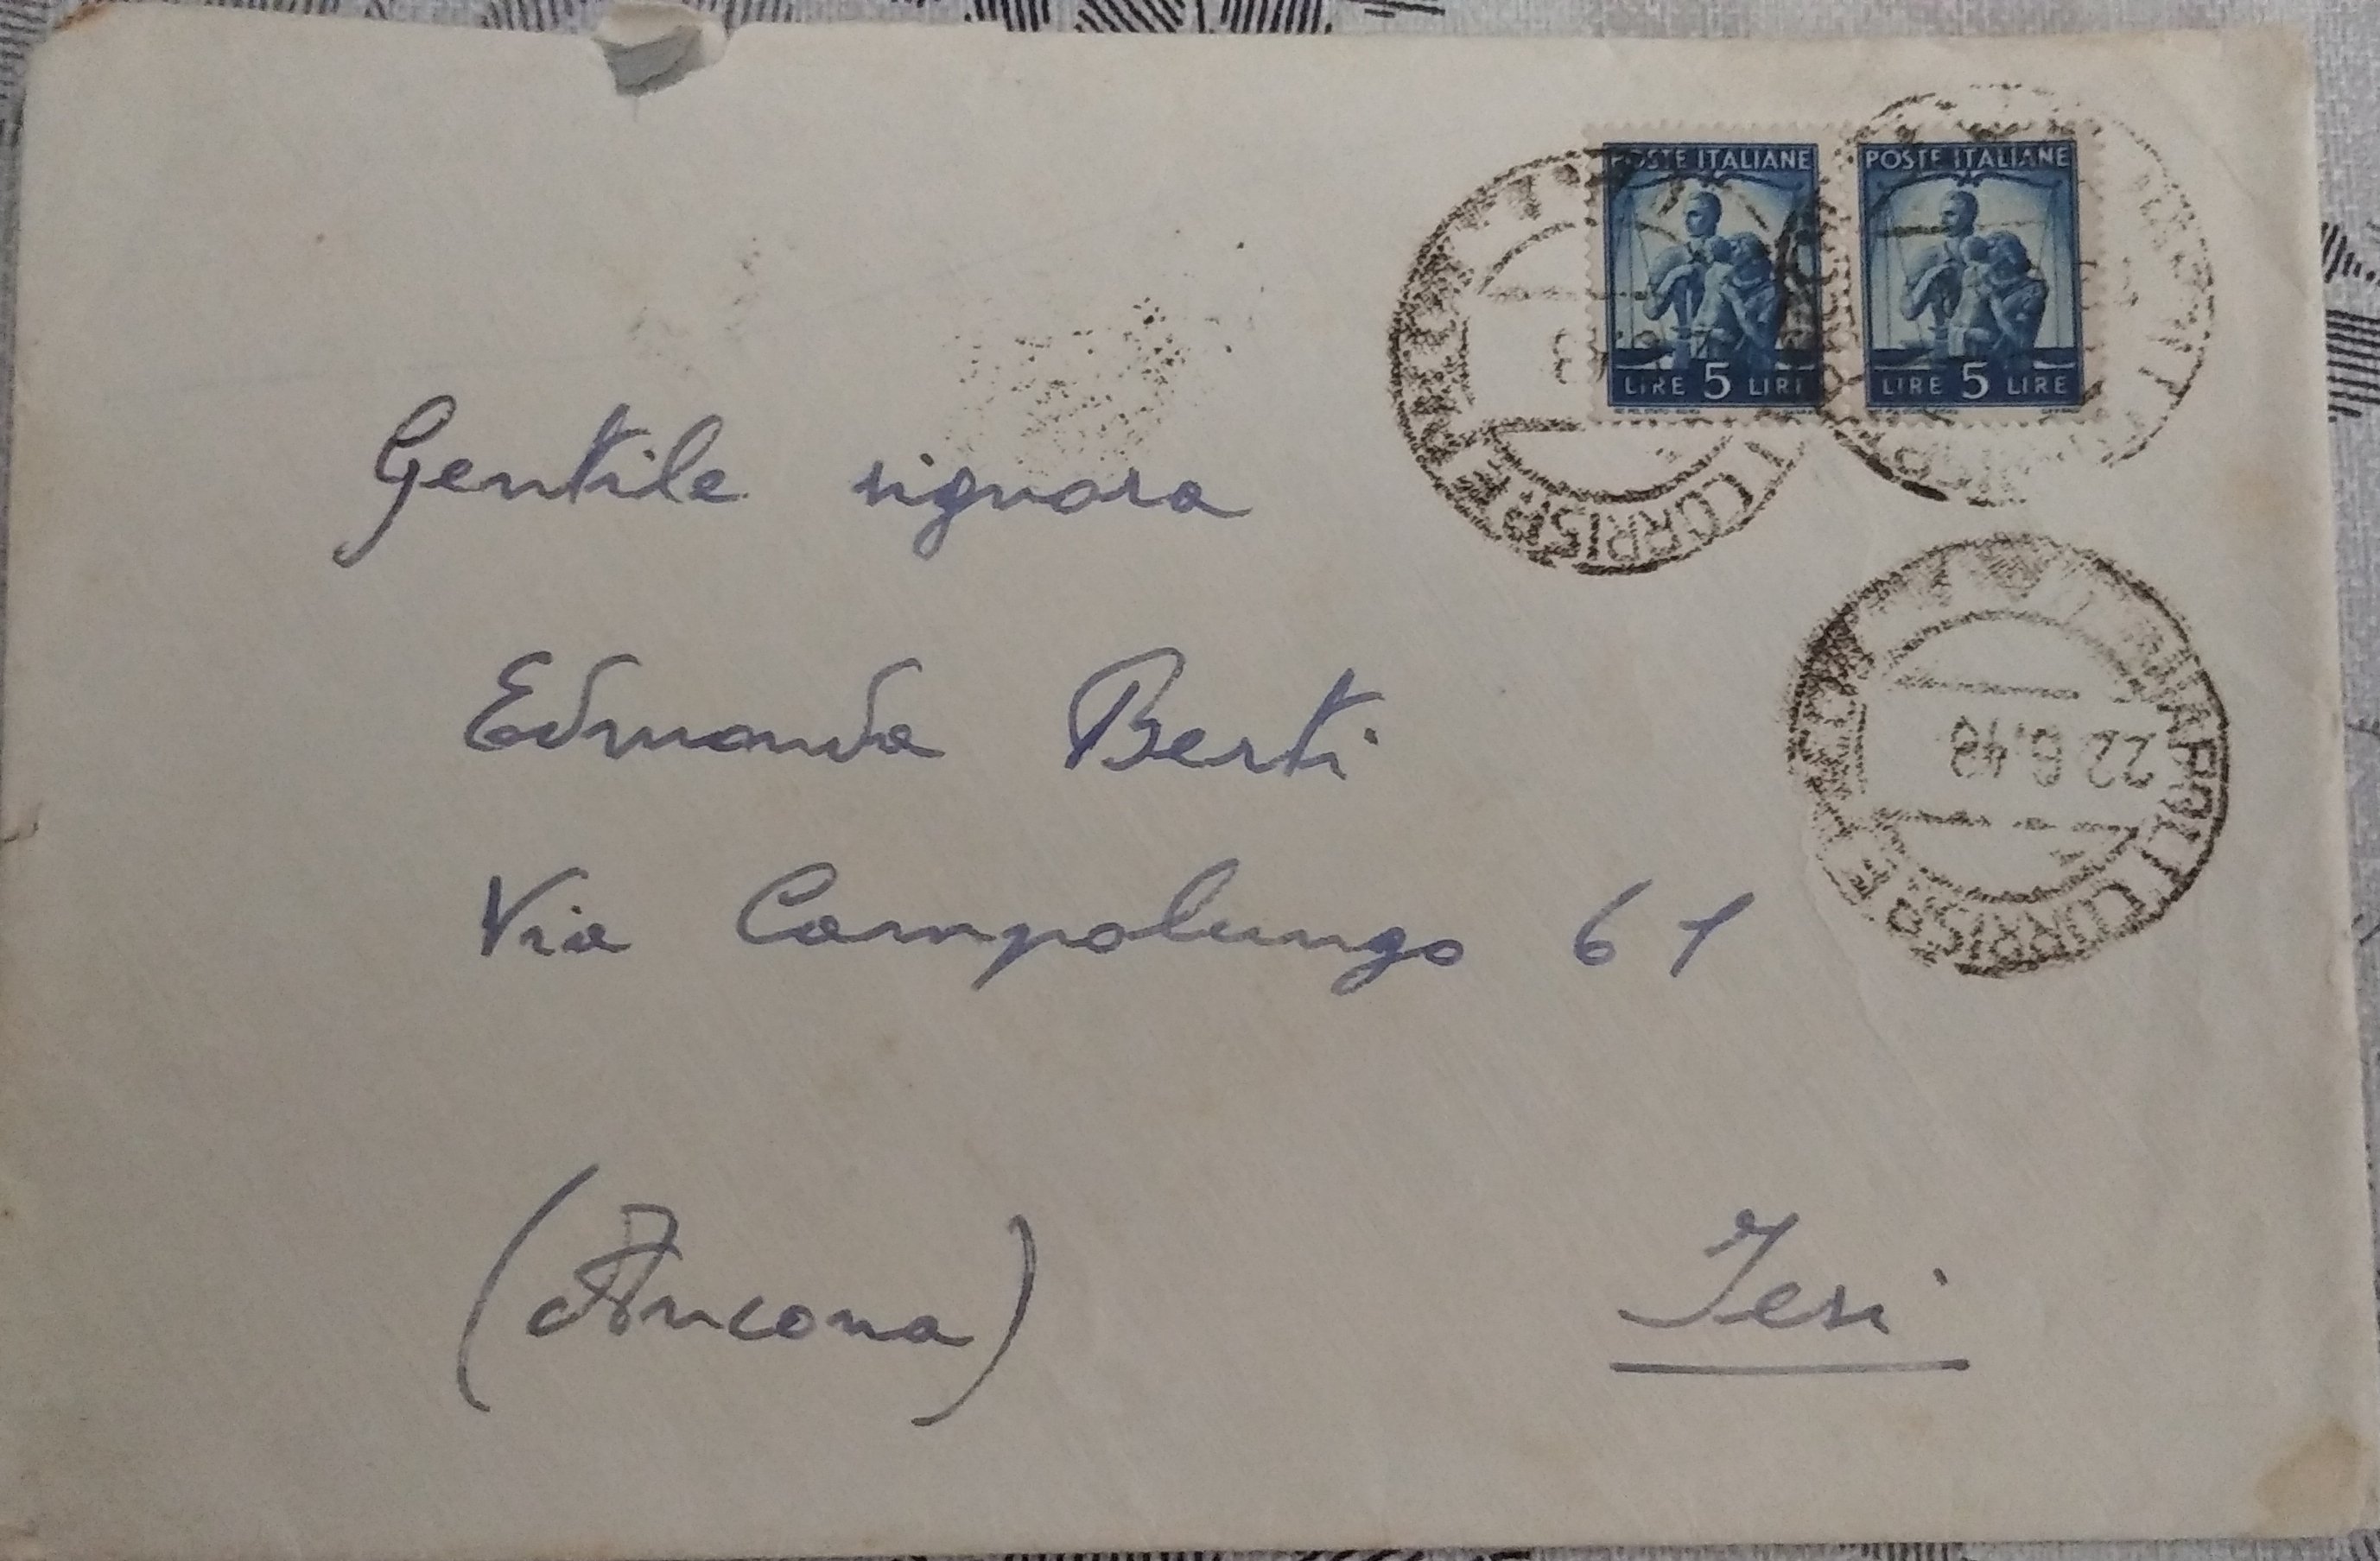 POSTE ITALIANE POSTE ITALIANE
LIRE 5 LIRE LIRE 5 LIRE
22 6.48
Gentile signora
Edmonda Berti
Via Campolungo 61
(Ancona) Jesi